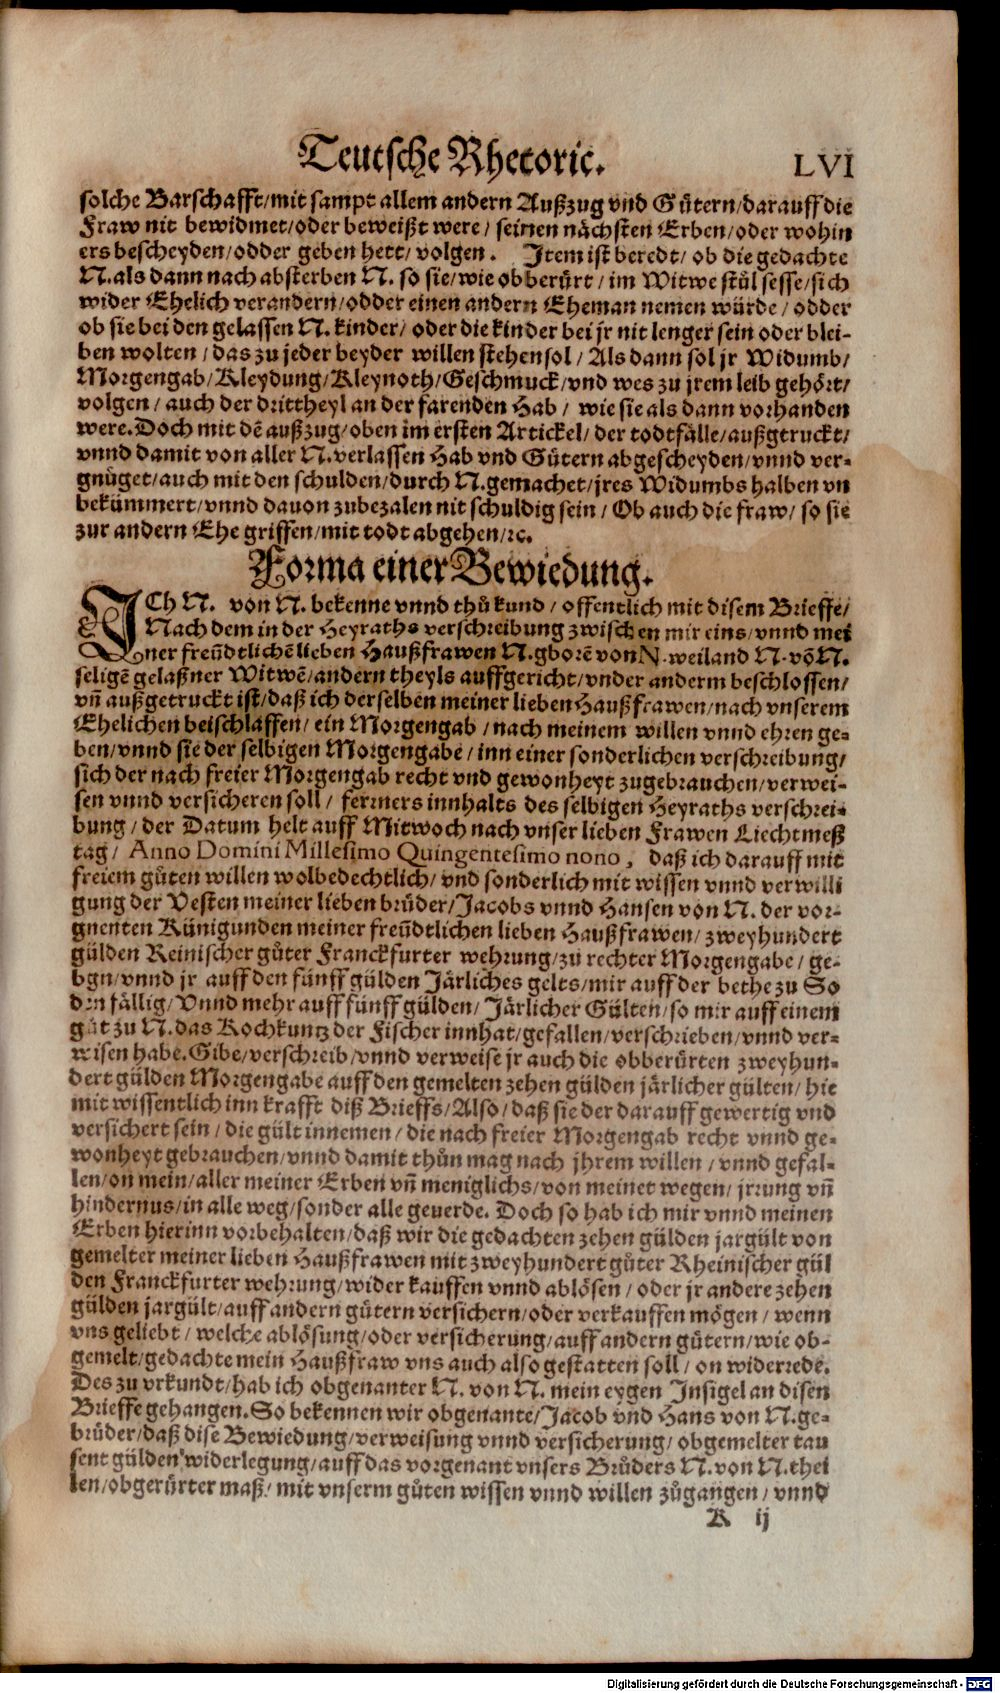 Teutsche Rhetoric. LVI
solche Barschafft/mit sampt allem andern Außzug vnd Gütern/darauff die
Fraw nit bewidmet/oder beweißt were/ seinen nächsten Erben/oder wohin
ers bescheyden/odder geben hett/ volgen. Item ist beredt/ ob die gedachte
N. als dann nach absterben N. so sie/wie obberürt/ im Witwe stůl sesse/sich
wider Ehelich verandern/odder einen andern Eheman nemen würde/ odder
ob sie bei den gelassen N. kinder/ oder die kinder bei jr nit lenger sein oder blei-
ben wolten/das zu jeder beyder willen stehen sol/ Als dann sol jr Widumb/
Morgengab/Kleydung/Kleynoth/Geschmuck/vnd wes zu jrem leib gehört/
volgen/ auch der drittheyl an der farenden Hab/ wie sie als dann vorhanden
were. Doch mit dē außzug/oben im ersten Artickel/der todtfälle/außgtruckt/
vnnd damit von aller N. verlassen Hab vnd Gütern abgescheyden/vnnd ver-
gnüget/auch mit den schulden/durch N. gemachet/jres Widumbs halben vn
bekümmert/vnnd dauon zubezalen nit schuldig sein/ Ob auch die fraw/ so sie
zur andern Ehe griffen/mit todt abgehen/ꝛc.
Forma einer Bewiedung.
ICh N. von N. bekenne vnnd thůkund/ offentlich mit disem Brieffe/
Nach dem in der Heyraths verschreibung zwischen mir eins/vnnd mei
ner freūdtlichē lieben Haußfrawen N. gborē von N. weiland N. vō N.
seligē gelaßner Witwē/andern theyls auffgericht/vnder anderm beschlossen/
vñ außgetruckt ist/daß ich derselben meiner lieben Haußfrawen/nach vnserem
Ehelichen beischlaffen/ein Morgengab/nach meinem willen vnnd ehren ge-
ben/vnnd sie der selbigen Morgengabe/inn einer sonderlichen verschreibung/
sich der nach freier Morgengab recht vnd gewonheyt zugebrauchen/verwei-
sen vnnd versicheren soll/ ferrners innhalts des selbigen Heyraths verschrei-
bung/der Datum helt auff Mitwoch nach vnser lieben Frawen Liechtmeß
tag/ Anno Domini Millesimo Quingentesimo nono, daß ich darauff mit
freiem gůten willen wolbedechtlich/ vnd sonderlich mit wissen vnnd verwilli
gung der Vesten meiner lieben brůder/Jacobs vnnd Hansen von N. der vor-
gnenten Künigunden meiner freūdtlichen lieben Haußfrawen/zweyhundert
gülden Reinischer gůter Franckfurter wehrung/zu rechter Morgengabe/ ge-
bgn/vnnd jr auff den fünff gülden Järliches gelts/mir auff der bethe zu So
den fällig/Vnnd mehr auff fünff gülden/ Järlicher Gülten/so mir auff einem
gůt zu N. das Kochkuntz der Fischer innhat/gefallen/verschrieben/vnnd ver-
wisen habe. Gibe/verschreib/vnnd verweise jr auch die obberürten zweyhun-
dert gülden Morgengabe auff den gemelten zehen gülden järlicher gülten/hie
mit wissentlich inn krafft diß Brieffs/Also/daß sie der darauff gewertig vnd
versichert sein/die gült innemen/die nach freier Morgengab recht vnnd ge-
wonheyt gebrauchen/vnnd damit thůn mag nach jhrem willen/vnnd gefal-
len/on mein/aller meiner Erben vñ meniglichs/von meinet wegen/jrrung vñ
hindernus/in alle weg/sonder alle geuerde. Doch so hab ich mir vnnd meinen
Erben hierinn vorbehalten/daß wir die gedachten zehen gülden jargült von
gemelter meiner lieben Haußfrawen mit zweyhundert gůter Rheinischer gül
den Franckfurter wehrung/wider kauffen vnnd ablösen/oder jr andere zehen
gülden jargült/auff andern gůtern versichern/oder verkauffen mögen/ wenn
vns geliebt/welche ablösung/oder versicherung/auff andern gůtern/wie ob-
gemelt/gedachte mein Haußfraw vns auch also gestatten soll/ on widerrede.
Des zu vrkundt/hab ich obgenanter N. von N. mein eygen Insigel an disen
Brieffe gehangen. So bekennen wir obgenante/Jacob vnd Hans von N. ge-
brüder/daß dise Bewiedung/verweisung vnnd versicherung/obgemelter tau
sent gülden widerlegung/auff das vorgenant vnsers Brůders N. von N. thei
len/obgerürter maß/mit vnserm gůten wissen vnnd willen zůgangen/vnnd
K ij
Digitalisierung gefördert durch die Deutsche Forschungsgemeinschaft - DFG